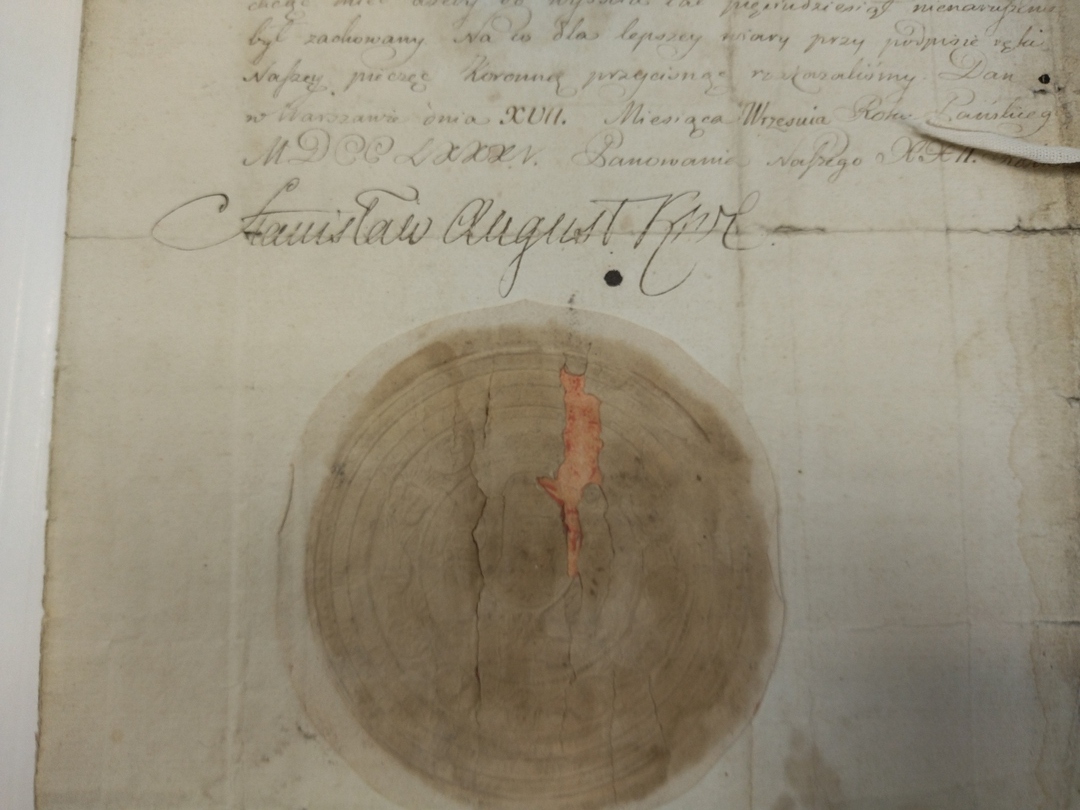 chcąc mieć ażeby do wyjścia lat pięciudziesiąt nienaruszenie
był zachowany Na co dla lepszey wiary przy podpisie ręki
Naszey pieczęć Koronną przycisnąć rozkazaliśmy. Dan
w Warszawie dnia XVII. Miesiąca Września Roku Pańskiego
MDCCLXXXV. Panowania Naszego XXII.
Stanisław August Król.